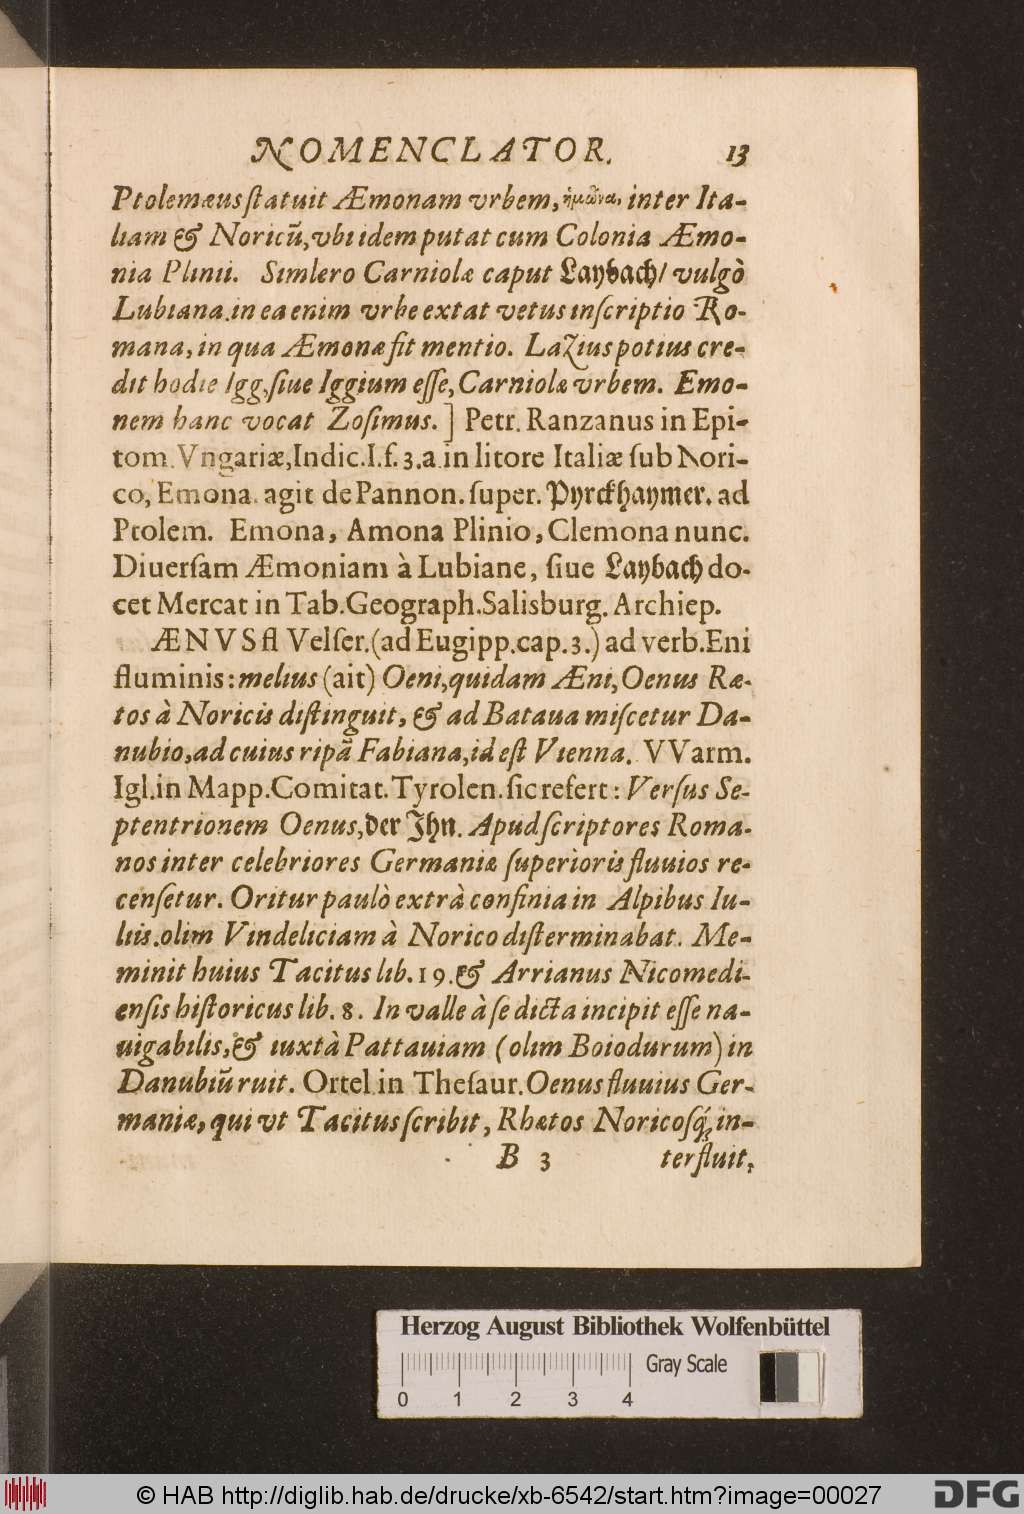 NOMENCLATOR. 13
Ptolemæus ſtatuit Æmonam vrbem, ἡμῶνα, inter Ita-
liam & Noricũ, vbi idem putat cum Colonia Æmo-
nia Plinii. Simlero Carniolæ caput Laybach/ vulgò
Lubiana. in ea enim vrbe extat vetus inſcriptio Ro-
mana, in qua Æmonæ fit mentio. Lazius potius cre-
dit hodie Igg, ſiue Iggium eſſe, Carniolæ vrbem. Emo-
nem hanc vocat Zoſimus. ] Petr. Ranzanus in Epi-
tom. Vngariæ, Indic. I. f. 3. a. in litore Italiæ ſub Nori-
co, Emona. agit de Pannon. ſuper. Pyrckhaymer. ad
Ptolem. Emona, Amona Plinio, Clemona nunc.
Diuerſam Æmoniam à Lubiane, ſiue Laybach do-
cet Mercat in Tab. Geograph. Salisburg. Archiep.
ÆNVS fl Velſer. (ad Eugipp. cap. 3.) ad verb. Eni
fluminis: melius (ait) Oeni, quidam Æni, Oenus Ræ-
tos à Noricis diſtinguit, & ad Bataua miſcetur Da-
nubio, ad cuius ripã Fabiana, id eſt Vienna. VVarm.
Igl. in Mapp. Comitat. Tyrolen. ſic refert: Verſus Se-
ptentrionem Oenus, der Jhn. Apud ſcriptores Roma-
nos inter celebriores Germaniæ ſuperioris fluuios re-
cenſetur. Oritur paulò extrà confinia in Alpibus Iu-
liis. olim Vindeliciam à Norico diſterminabat. Me-
minit huius Tacitus lib. 19. & Arrianus Nicomedi-
enſis hiſtoricus lib. 8. In valle à ſe dicta incipit eſſe na-
uigabilis, & iuxtà Pattauiam (olim Boiodurum) in
Danubiũ ruit. Ortel in Theſaur. Oenus fluuius Ger-
maniæ, qui vt Tacitus ſcribit, Rhætos Noricoſq́; in-
B 3 terfluit,
Herzog August Bibliothek Wolfenbüttel
Gray Scale
0 1 2 3 4
© HAB http://diglib.hab.de/drucke/xb-6542/start.htm?image=00027
DFG